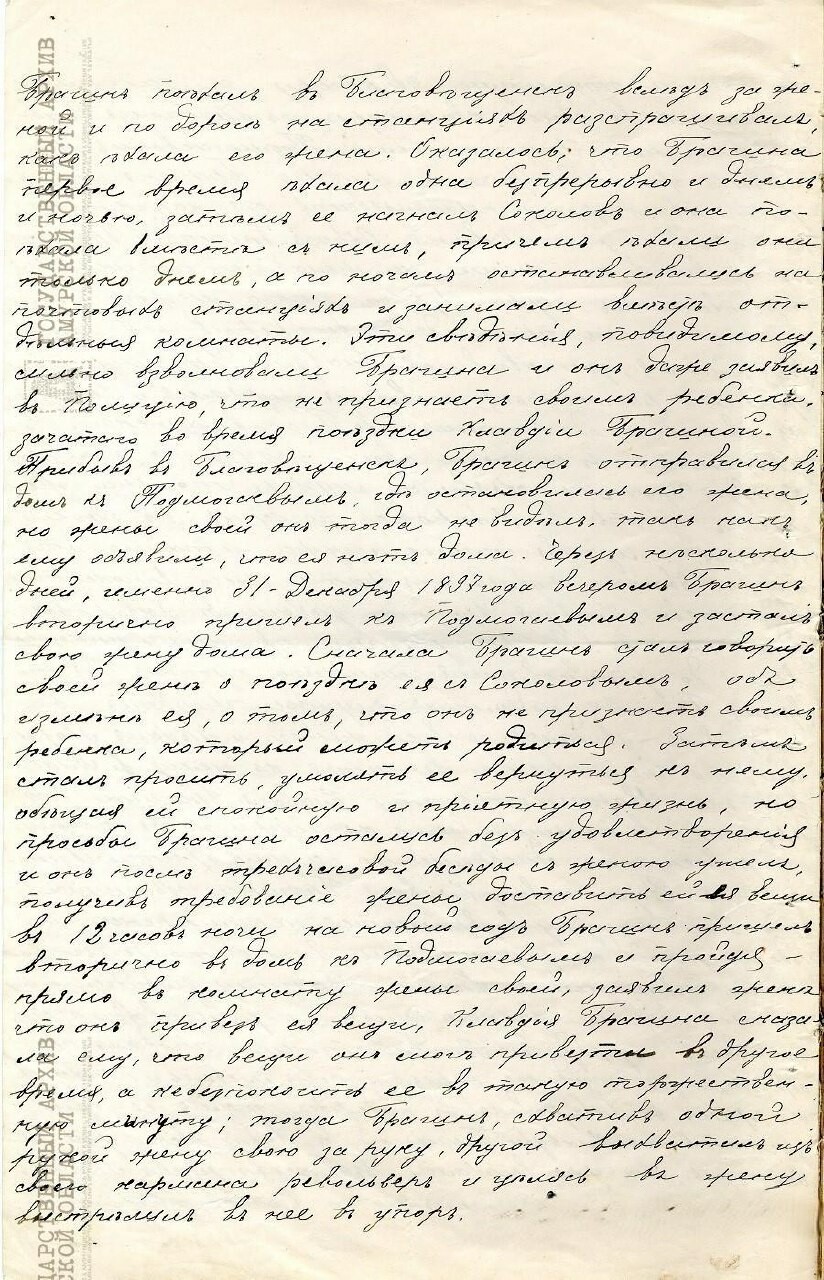 Брагинъ поѣхалъ въ Благовѣщенскъ вслѣдъ за же-
ной и по дорогѣ на станціяхъ разспрашивалъ,
какъ ѣхала его жена. Оказалось, что Брагина
первое время ѣхала одна безпрерывно и днемъ
и ночью, затѣмъ ее нагналъ Соколовъ и она по-
ѣхала вмѣстѣ съ нимъ, причемъ ѣхали они
только днемъ, а по ночамъ останавливались на
почтовыхъ станціяхъ и занимали вмѣстѣ от-
дѣльныя комнаты. Эти свѣдѣнія, повидимому,
сильно взволновали Брагина и онъ даже заявилъ
въ Полицію, что не признаетъ своимъ ребенка,
зачатаго во время поѣздки Клавдіи Брагиной.
Прибывъ въ Благовѣщенскъ, Брагинъ отправился въ
домъ къ Подмогаевымъ, гдѣ остановилась его жена,
но жены своей онъ тогда не видѣлъ, такъ какъ
ему объявили, что ея нѣтъ дома. Черезъ нѣсколько
дней, именно 31-Декабря 1897 года вечеромъ Брагинъ
вторично пришелъ къ Подмогаевымъ и засталъ
свою жену дома. Сначала Брагинъ сталъ говорить
своей женѣ о поѣздкѣ ея съ Соколовымъ, объ
измѣнѣ ея, о томъ, что онъ не признаетъ своимъ
ребенка, который можетъ родиться. Затѣмъ
сталъ просить, умолять ее вернуться къ нему,
обѣщая ей спокойную и пріятную жизнь, но
просьбы Брагина остались безъ удовлетворенія
и онъ послѣ трехчасовой бесѣды съ женою ушелъ,
получивъ требованіе жены доставить ей ея вещи
въ 12 часовъ ночи на новый годъ Брагинъ пришелъ
вторично въ домъ къ Подмогаевымъ и пройдя
прямо въ комнату жены своей, заявилъ женѣ
что онъ привезъ ея вещи, Клавдія Брагина сказа-
ла ему, что вещи онъ могъ привезти въ другое
время, а не безпокоить ее въ такую торжествен-
ную минуту; тогда Брагинъ, схвативъ одной
рукой жену свою за руку, другой выхватилъ изъ
своего кармана револьверъ и цѣлясь въ жену
выстрѣлилъ въ нее въ упоръ.
ГОСУДАРСТВЕННЫЙ АРХИВ
АМУРСКОЙ ОБЛАСТИ
ДАРСТВЕННЫЙ АРХИВ
СКОЙ ОБЛАСТИ